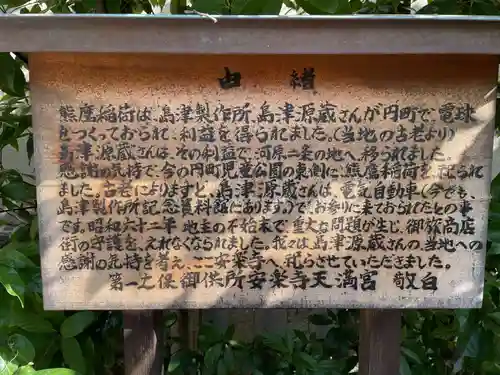 由緒
熊鷹稲荷は、島津製作所、島津源蔵さんが円町で、電球
をつくっておられ、利益を得られました。(当地の古老より)
島津源蔵さんは、その利益で、河原二条の地へ、移られました。
感謝の気持で、今の円町児童公園の東側に、熊鷹稲荷を、祀られ
ました。古老によりますと、島津源蔵さんは、電気自動車(今でも、
島津製作所記念資料館にあります。)で、お参りに来ておられたとの事
です。昭和六十二年 地主の不始末で、重大な問題が生じ、御旅商店
街の守護を、えれなくなられました。我々は、島津源蔵さんの、当地への
感謝の気持を考え、ここ安楽寺へ、祀らせていただきました。
第一之保御供所安楽寺天満宮 敬白